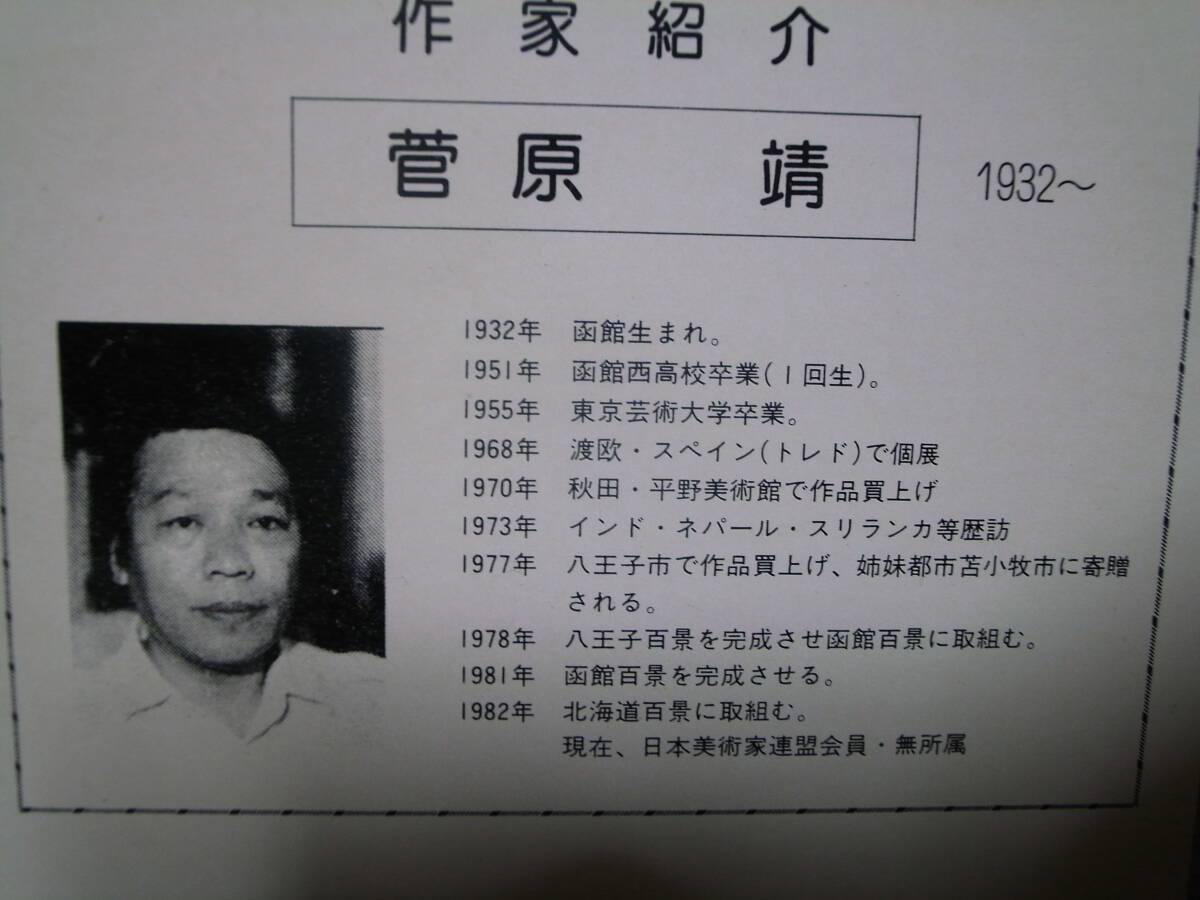 作家紹介
菅原 靖 1932〜
1932年 函館生まれ。
1951年 函館西高校卒業(1回生)。
1955年 東京芸術大学卒業。
1968年 渡欧・スペイン(トレド)で個展
1970年 秋田・平野美術館で作品買上げ
1973年 インド・ネパール・スリランカ等歴訪
1977年 八王子市で作品買上げ、姉妹都市苫小牧市に寄贈
される。
1978年 八王子百景を完成させ函館百景に取組む。
1981年 函館百景を完成させる。
1982年 北海道百景に取組む。
現在、日本美術家連盟会員・無所属